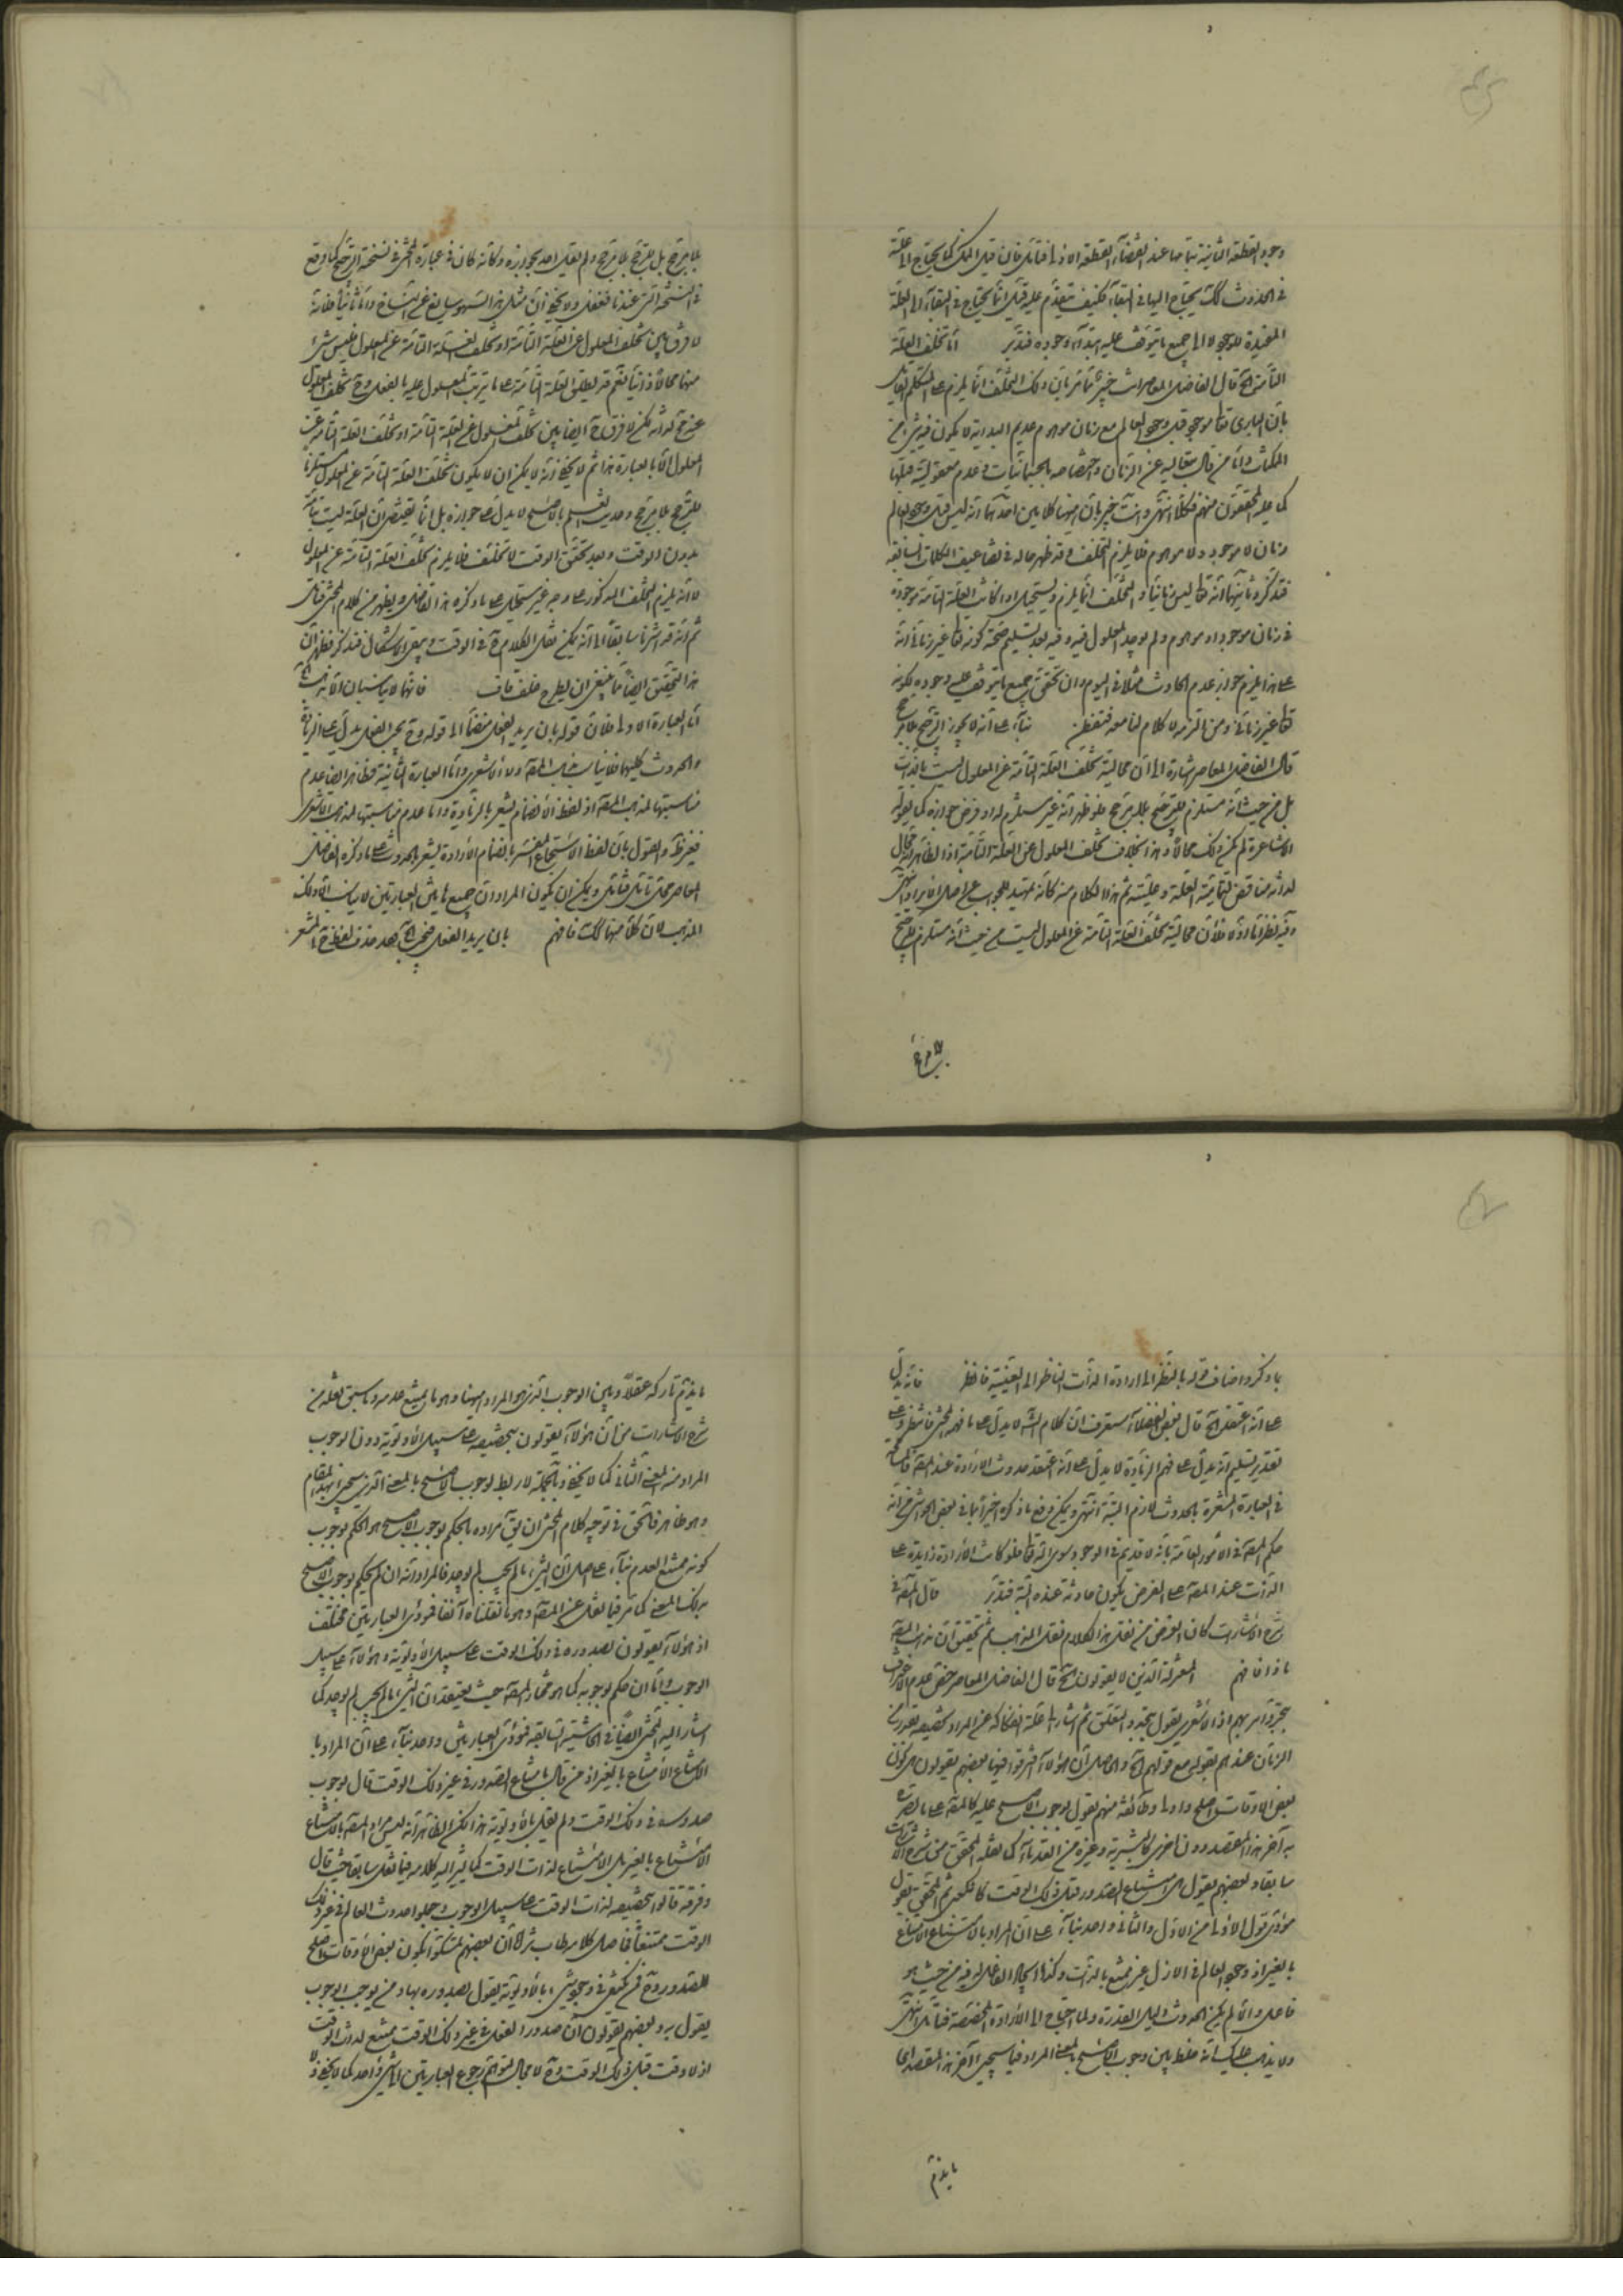 وجود القطعة الثانية بتمامها عند انقضاء القطعة الاولى فتأمل فان قيل الممكن كما يحتاج الى علة
في الحدوث كك يحتاج اليها في البقاء فكيف يتقدم عليه قيل انما يحتاج في البقاء الى العلة
المفيدة للوجود لا الى جميع ما يتوقف عليه ابتداء وجوده فتدبر اما تخلف العلة
التامة الخ قال الفاضل المعاصر انت خبير بان ذلك التخلف انما يلزم على المتكلم القائل
بان الباري تعالى موجود قبل وجود العالم مع زمان موهوم عديم البداية لا يكون فيه شيء من
الممكنات واما من قال بتعاليه عن الزمان واختصاصه بالجسمانيات وعدم معقولية قبلها
كما عليه المحققون منهم فكلا انتهى وانت خبير بان ههنا كلامين احدهما انه ليس قبل وجود العالم
زمان لا موجود ولا موهوم فلا يلزم التخلف وقد ظهر حاله في تضاعيف الكلمات السابقة
فتذكر وثانيهما انه تعالى ليس زمانيا والتخلف انما يلزم ويستحيل اذا كانت العلة التامة موجودة
في زمان موجود او موهوم ولم يوجد المعلول فيه وفيه بعد تسليم صحة كونه تعالى غير زماني انه
على هذا يلزم جواز عدم الحادث مثلا في اليوم وان تحقق جميع ما يتوقف عليه وجوده بكونه
تعالى غير زماني ومن التزمه لا كلام لنا معه فتفطن بناء على انه لا يجوز الترجيح بلا مرجح
قال الفاضل المعاصر اشارة الى ان محالية تخلف العلة التامة عن المعلول ليست بالذات
بل من حيث انه مستلزم للترجيح بلا مرجح فلو ظهر انه غير مستلزم له او فرض جوازه كما يقوله
الاشاعرة لم يكن ذلك محالا وهذا بخلاف تخلف المعلول عن العلة التامة اذ الظاهر انه محال
لذاته مناقض لتمامية العلة وعليته ثم هذا الكلام منه كأنه تمهيد للجواب عن اصل الايراد انتهى
وفيه نظر اما اولا فلان محالية تخلف العلة التامة عن المعلول ليست من حيث انه مستلزم للترجيح
بلا مرجح
بلا مرجح بل للترجح بلا مرجح ولم يقل احد بجوازه وكأنه كان في عبارة المحشي في نسخته الترجيح كما وقع
في النسخة التي عندنا فغفل ولا يخفى ان مثل هذا السهو شايع عن النساخ واما ثانيا فلانه
لا فرق بين تخلف المعلول عن العلة التامة او تخلف العلة التامة عن المعلول فليس شيء
منهما محالا ذاتيا نعم قد يطلق العلة التامة على ما يترتب المعلول عليه بالفعل وح تخلف المعلول
عنه محال لذاته لكن لا فرق ح ايضا بين تخلف المعلول عن العلة التامة او تخلف العلة التامة عن
المعلول الا بالعبارة هذا ثم لا يخفى انه لا يمكن ان لا يكون تخلف العلة التامة عن المعلول مستلزما
للترجح بلا مرجح وحديث العلم بالاصلح لا يدل على جوازه بل انما يقتضي ان العلة ليست بتامة
بدون الوقت وبعد تحقق الوقت لا تخلف فلا يلزم تخلف العلة التامة عن المعلول
لا انه يلزم التخلف المذكور على وجه غير مستحيل على ما ذكره هذا الفاضل ويظهر من كلام المحشي فتأمل
ثم انه قد اشرنا سابقا الى انه يمكن نقل الكلام في الوقت ويبقى الاشكال فتذكر فظهر ان
هذا التحقيق ايضا مما ينبغي ان يطرح خلف قاف فانهما لا يناسبان الا مذهب الخ
اما العبارة الاولى فلان قوله بان يريد الفعل منضما الى قوله وح يجب الفعل يدل على الزيادة
والحدوث كليهما فلا يناسب مذهب المصنف ولا الاشعري واما العبارة الثانية فظاهر ايضا عدم
مناسبتها لمذهب المصنف اذ لفظ الانضمام يشعر بالزيادة واما عدم مناسبتها لمذهب الاشعري
فغير ظاهر والقول بان لفظ الاستجماع المفسر بانضمام الارادة يشعر بالحدوث على ما ذكره الفاضل
المعاصر محل تأمل فتأمل ويمكن ان يكون المراد ان جميع هاتين العبارتين لا يناسب الا ذلك
المذهب لان كلا منهما كك فافهم بان يريد الفعل فيجب الخ بعد حذف لفظ ح المشعر
بما ذكر واضاف قوله بالنظر الى ارادة الذات الناظر الى العينية فانظر فانه يدل
على انه اعتقد الخ قال بعض الفضلاء ستعرف ان كلام الشارح لا يدل على ما فهمه المحشي فانتظر وعلى
تقدير تسليم انه يدل على فهم الزيادة لا يدل على انه اعتقد حدوث الارادة عند المصنف
في العبارة المشعرة بالحدوث لازم البتة انتهى ويمكن دفع ما ذكره اخيرا بما في بعض الحواشي من انه
حكم المصنف في الامور العامة بانه لا قديم في الوجود سوى الله تعالى فلو كانت الارادة زايدة على
الذات عند المصنف على الفرض يكون حادثة عنده البتة فتدبر قال المصنف في
شرح الاشارات كان الغرض من نقل هذا الكلام نقل المذاهب ثم تحقيق ان مذهب المصنف
ماذا فافهم المعتزلة الذين لا يقولون الخ قال الفاضل المعاصر حقق عدم الاعتراف
الزمان عندهم بقوله مع قولهم الخ والحاصل ان هؤلاء افترقوا فبعضهم يقولون بكون
بعض الاوقات اصلح واولى وطائفة منهم يقول بوجوب الاصلح عليه كالمصنف على ما يصرح
به آخر هذا المقصد دون اخرى كالبشرية وغيره من القدماء كما نقله المحقق من شرح الاشارات
سابقا وبعضهم يقول بامتناع الصدور قبل ذلك الوقت كالكعبي ثم المحقق يقول
مؤدى قول الاولى من الاول والثاني واحد بناء على ان المراد بالامتناع الامتناع
بالغير اذ وجود العالم في الازل غير ممتنع بالذات وكذا ايجاد الفاعل له فيه من حيث هو
فاعل والا لم يكن الحدوث دليل القدرة ولما احتاج الى الارادة المخصصة فتأمل انتهى
ولا يذهب عليك انه خلط بين وجوب الاصلح بالمعنى المراد فيما سيجيء آخر هذا المقصد اي ما
ما يذم
ما يذم تاركه عقلا وبين الوجوب الذي هو المراد ههنا وهو ما يمتنع عدمه وما سبق نقله من
شرح الاشارات من ان هؤلاء يقولون بتخصيصه على سبيل الاولوية دون الوجوب
المراد منه المعنى الثاني كما لا يخفى وبالجملة لا ربط لوجوب الاصلح بالمعنى الذي سيجيء بهذا المقام
وهو ظاهر فالحق في توجيه كلام المحشي ان يقال مراده بالحكم بوجوب الاصلح هو الحكم بوجوب
كونه ممتنع العدم بناء على اصل ان الشيء ما لم يجب لم يوجد فالمراد انه ان لم يحكم بوجوب الاصلح
بذلك المعنى كما مر فيما نقل عن المصنف وهو ما نقلناه آنفا فمؤدى العبارتين مختلف
اذ هؤلاء يقولون بصدوره في ذلك الوقت على سبيل الاولوية وهؤلاء على سبيل
الوجوب واما ان حكم بوجوبه كما هو مختار المصنف حيث يعتقد ان الشيء ما لم يجب لم يوجد كما
اشار اليه المحشي ايضا في الحاشية السابقة فمؤدى العبارتين واحد بناء على ان المراد با
الامتناع الامتناع بالغير اذ من قال بامتناع الصدور في غير ذلك الوقت قال بوجوب
صدوره في ذلك الوقت ولم يقل بالاولوية هذا لكن الظاهر انه ليس مراد المصنف بالامتناع
الامتناع بالغير بل الامتناع لذات الوقت كما يشير اليه كلامه فيما نقل سابقا حيث قال
وفرقة قالوا بتخصيصه لذات الوقت على سبيل الوجوب وجعلوا حدوث العالم في غير ذلك
الوقت ممتنعا فحاصل كلامه طاب ثراه ان بعضهم تمسكوا بكون بعض الاوقات اصلح
للصدور وح فمن يكتفي في وجود شيء بالاولوية يقول بصدوره بها ومن يوجب الوجوب
يقول به وبعضهم يقولون ان صدور الفعل في غير ذلك الوقت ممتنع لذات الوقت
اذ لا وقت قبل ذلك الوقت وح لا مجال لتوهم رجوع العبارتين الى شيء واحد كما لا يخفى ولا